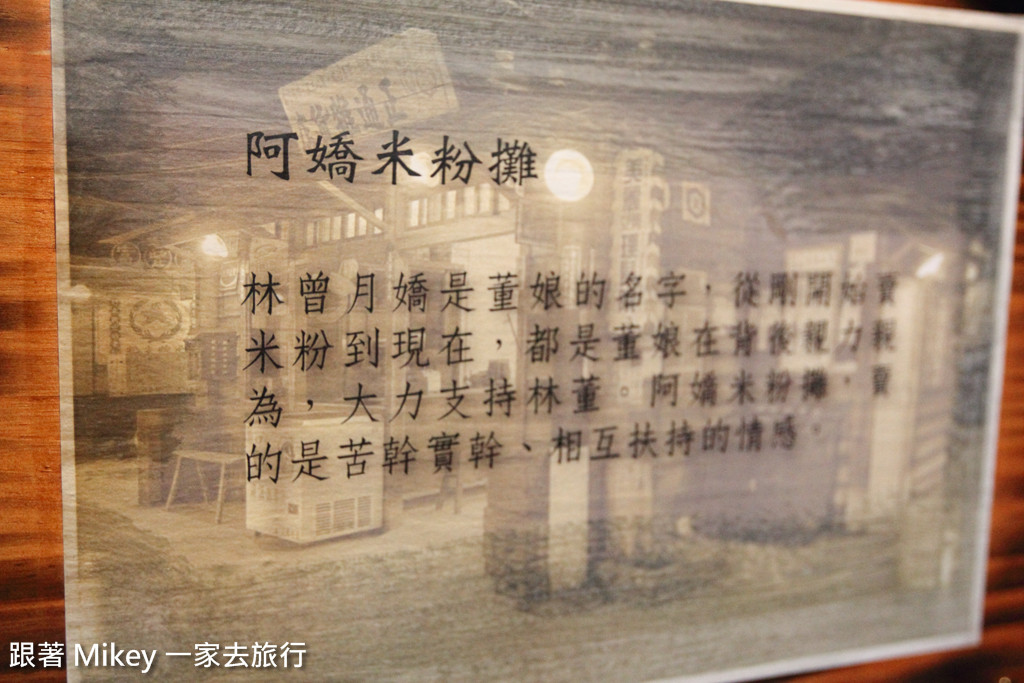 阿嬌米粉攤
林曾月嬌是董娘的名字，從剛開始賣
米粉到現在，都是董娘在背後親力親
為，大力支持林董。阿嬌米粉攤，賣
的是苦幹實幹、相互扶持的情感。
跟著 Mikey 一家去旅行